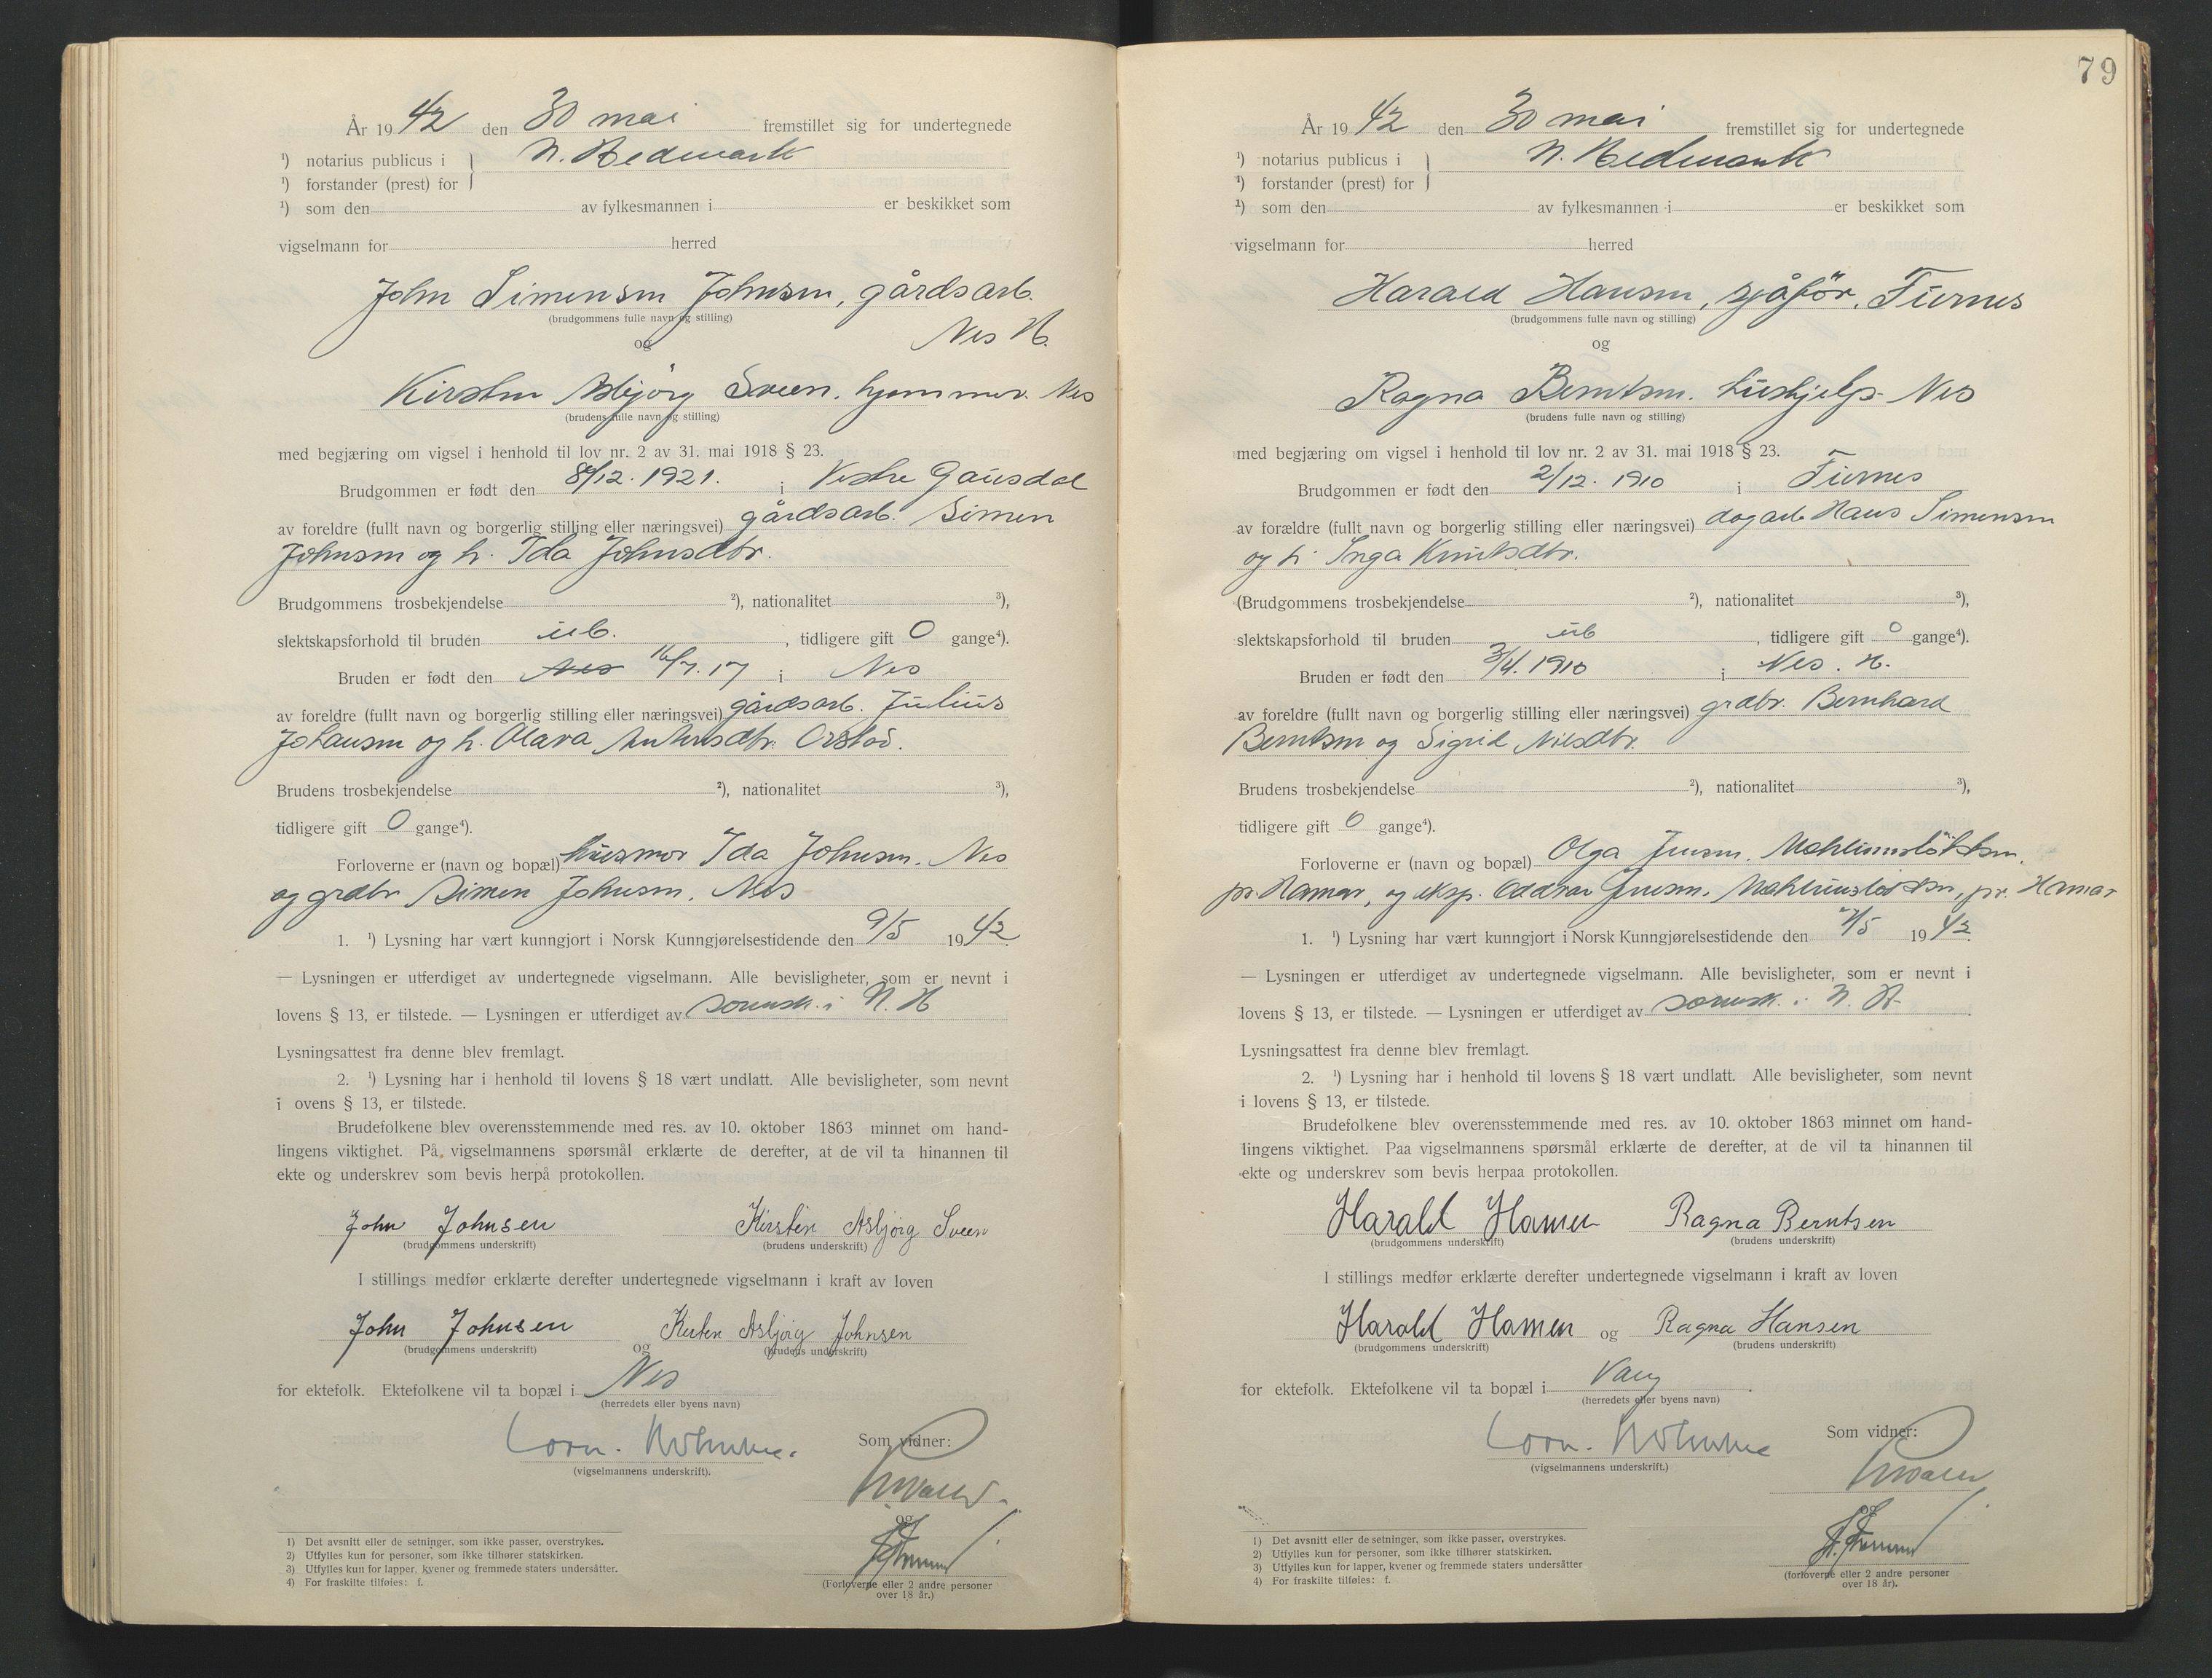 År 1942 den 30 mai fremstillet sig for undertegnede
¹) notarius publicus i } N. Hedmark
¹) forstander (prest) for
¹) som den av fylkesmannen i er beskikket som
vigselmann for herred
John Simensen Johnsen, gårdsarb.
(brudgommens fulle navn og stilling)
Nes H.
og
Kirsten Asbjörg Sveen. hjemmev. Nes
(brudens fulle navn og stilling)
med begjæring om vigsel i henhold til lov nr. 2 av 31. mai 1918 § 23.
Brudgommen er født den 8/12. 1921. i Vestre Gausdal
av foreldre (fullt navn og borgerlig stilling eller næringsvei) gårdsarb. Simen
Johnsen og h. Ida Johnsdtr.
Brudgommens trosbekjendelse ²), nationalitet ³),
slektskapsforhold til bruden ub. , tidligere gift 0 gange⁴).
Bruden er født den Nes 16/7. 17 i Nes
av foreldre (fullt navn og borgerlig stilling eller næringsvei) gårdsarb. Julius
Johansen og h. Olava
Brudens trosbekjendelse ²), nationalitet ³),
tidligere gift 0 gange⁴).
Forloverne er (navn og bopæl) husmor Ida Johnsen. Nes
og grdbr Simen Johnsen. Nes
1. ¹) Lysning har vært kunngjort i Norsk Kunngjørelsestidende den 9/5 1942
— Lysningen er utferdiget av undertegnede vigselmann. Alle bevisligheter, som er nevnt i
lovens § 13, er tilstede. — Lysningen er utferdiget av sorensk. i N. H
Lysningsattest fra denne blev fremlagt.
2. ¹) Lysning har i henhold til lovens § 18 vært undlatt. Alle bevisligheter, som nevnt
i ovens § 13, er tilstede.
Brudefolkene blev overensstemmende med res. av 10. oktober 1863 minnet om hand-
lingens viktighet. På vigselmannens spørsmål erklærte de derefter, at de vil ta hinannen til
ekte og underskrev som bevis herpå protokollen.
John Johnsen Kirsten Asbjørg Sveen
(brudgommens underskrift) (brudens underskrift)
I stillings medfør erklærte derefter undertegnede vigselmann i kraft av loven
John Johnsen og Kirsten Asbjørg Johnsen
(brudgommens underskrift) (brudens underskrift)
for ektefolk. Ektefolkene vil ta bopæl i Nes
(herredets eller byens navn)
Som vidner:
(vigselmannens underskrift).
og
(Forloverne eller 2 andre personer
over 18 år.)
1) Det avsnitt eller de setninger, som ikke passer, overstrykes.
2) Utfylles kun for personer, som ikke tilhører statskirken.
3) Utfylles kun for lapper, kvener og fremmede staters undersåtter.
4) For fraskilte tilføies: f.
79
År 1942 den 30 mai fremstillet sig for undertegnede
¹) notarius publicus i } N. Hedmark
¹) forstander (prest) for
¹) som den av fylkesmannen i er beskikket som
vigselmann for herred
Harald Hansen, sjåför. Furnes
(brudgommens fulle navn og stilling)
og
Ragna Berntsen. hushjelp. Nes
(brudens fulle navn og stilling)
med begjæring om vigsel i henhold til lov nr. 2 av 31. mai 1918 § 23.
Brudgommen er født den 2/12. 1910 i Furnes
av forældre (fullt navn og borgerlig stilling eller næringsvei) dagarb Hans Simensen
og h. Inga Knutsdtr.
(Brudgommens trosbekjendelse ²), nationalitet ³),
slektskapsforhold til bruden ub , tidligere gift 0 gange⁴).
Bruden er født den 3/4. 1910 i Nes. H.
av foreldre (fullt navn og borgerlig stilling eller næringsvei) grdbr. Bernhard
Berntsen og Sigrid Nilsdtr.
Brudens trosbekjendelse ²), nationalitet ³),
tidligere gift 0 gange⁴).
Forloverne er (navn og bopæl) Olga Jensen.
pr. Hamar, og eksp. Oddvar Jensen. pr. Hamar
1. ¹) Lysning har vært kunngjort i Norsk Kunngjørelsestidende den 1942
— Lysningen er utferdiget av undertegnede vigselmann. Alle bevisligheter, som er nevnt i
lovens § 13, er tilstede. — Lysningen er utferdiget av sorensk. i N. H.
Lysningsattest fra denne blev fremlagt.
2. ¹) Lysning har i henhold til lovens § 18 vært undlatt. Alle bevisligheter, som nevnt
i lovens § 13, er tilstede.
Brudefolkene blev overensstemmende med res. av 10. oktober 1863 minnet om hand-
lingens viktighet. Paa vigselmannens spørsmål erklærte de derefter, at de vil ta hinannen til
ekte og underskrev som bevis herpaa protokollen.
Harald Hansen Ragna Berntsen
(brudgommens underskrift) (brudens underskrift)
I stillings medfør erklærte derefter undertegnede vigselmann i kraft av loven
Harald Hansen og Ragna Hansen
(brudgommens underskrift) (brudens underskrift)
for ektefolk. Ektefolkene vil ta bopæl i Vang
(herredets eller byens navn)
Som vidner:
(vigselmannens underskrift.)
og
(forloverne eller 2 andre personer
over 18 år).
1) Det avsnitt eller de setninger, som ikke passer, overstrykes.
2) Utfylles kun for personer, som ikke tilhører statskirken.
3) Utfylles kun for lapper, kvener og fremmede staters undersåtter
4) For fraskilte tilføies: f.